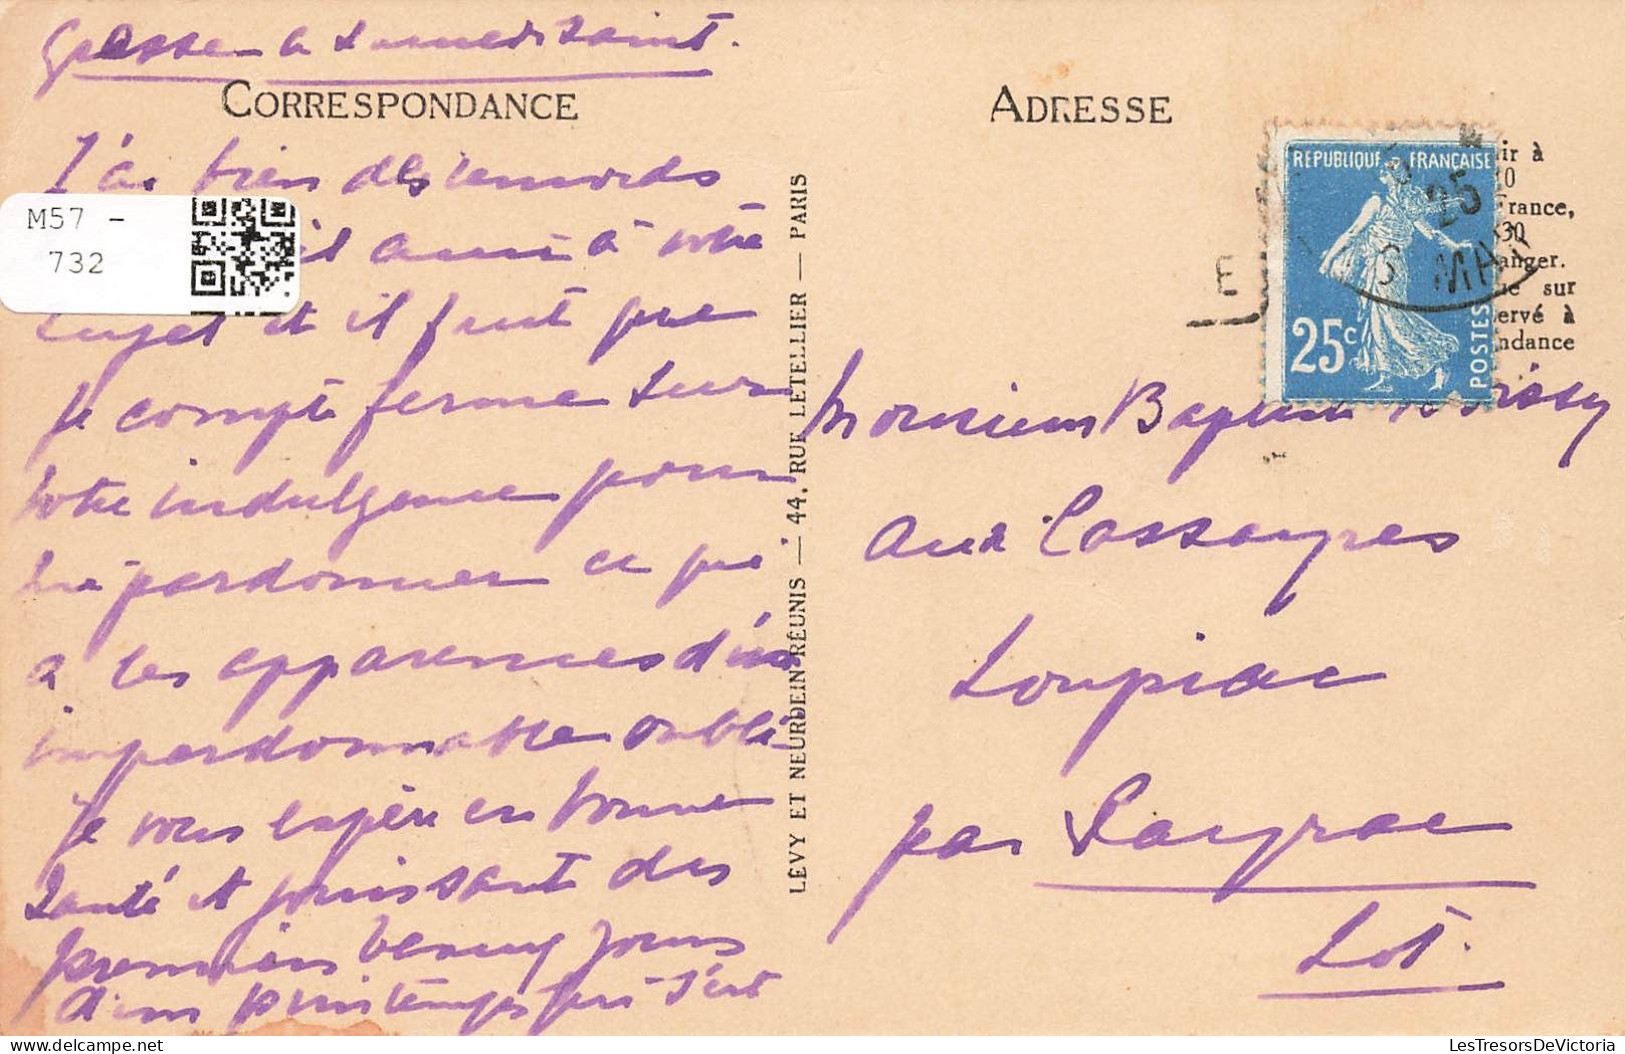 Grasse le Samedi Saint.
CORRESPONDANCE
J'ai bien des remords
ami à votre
sujet et il faut que
je compte ferme sur
votre indulgence pour
me pardonner ce qui
a les apparences d'un
impardonnable oubli
je vous espère en bonne
santé et jouissant des
premiers beaux jours
d'un printemps qui s'est
M57 -
732
LÉVY ET NEURDEIN RÉUNIS — 44, RUE LETELLIER — PARIS
ADRESSE
RÉPUBLIQUE FRANÇAISE
25c
POSTES
25
E
ir à
10
France,
30
anger.
ue sur
ervé à
ndance
Monsieur Baptiste
aux Cassagnes
Loupiac
par Payrac
Lot.
LesTresorsDeVictoria
delcampe.net